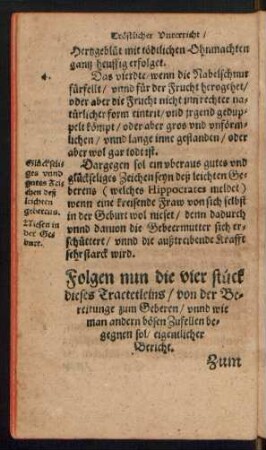 Tröstlicher Vnterricht /
Hertzgeblüt mit tödtlichen Ohnmachten
gantz heuffig erfolget.
4.
Das vierdte / wenn die Nabelschnur
fürfellt / vnnd für der Frucht herogehet /
oder aber die Frucht nicht inn rechter na-
türlicher form eintrit / vnd jrgend gedup-
pelt kömpt / oder aber gros vnd vnförm-
lichen / vnnd lange inne gestanden / oder
aber wol gar todt ist.
Glückseli-
ges vnnd
gutes Zei-
chen deß
leichten
geberens.
Niesen in
der Ge-
burt.
Dargegen sol ein vberaus gutes vnd
glückseliges Zeichen seyn deß leichten Ge-
berens ( welches Hippocrates meldet )
wenn eine kreisende Fraw von sich selbst
in der Geburt wol nieset / denn dadurch
vnnd dauon die Gebeermutter sich er-
schüttert / vnnd die außtreibende Krafft
sehr starck wird.
Folgen nun die vier stück
dieses Tractetleins / von der Be-
reitunge zum Geberen / vnnd wie
man andern bösen Zufellen be-
gegnen sol / eigentlicher
Bericht.
Zum